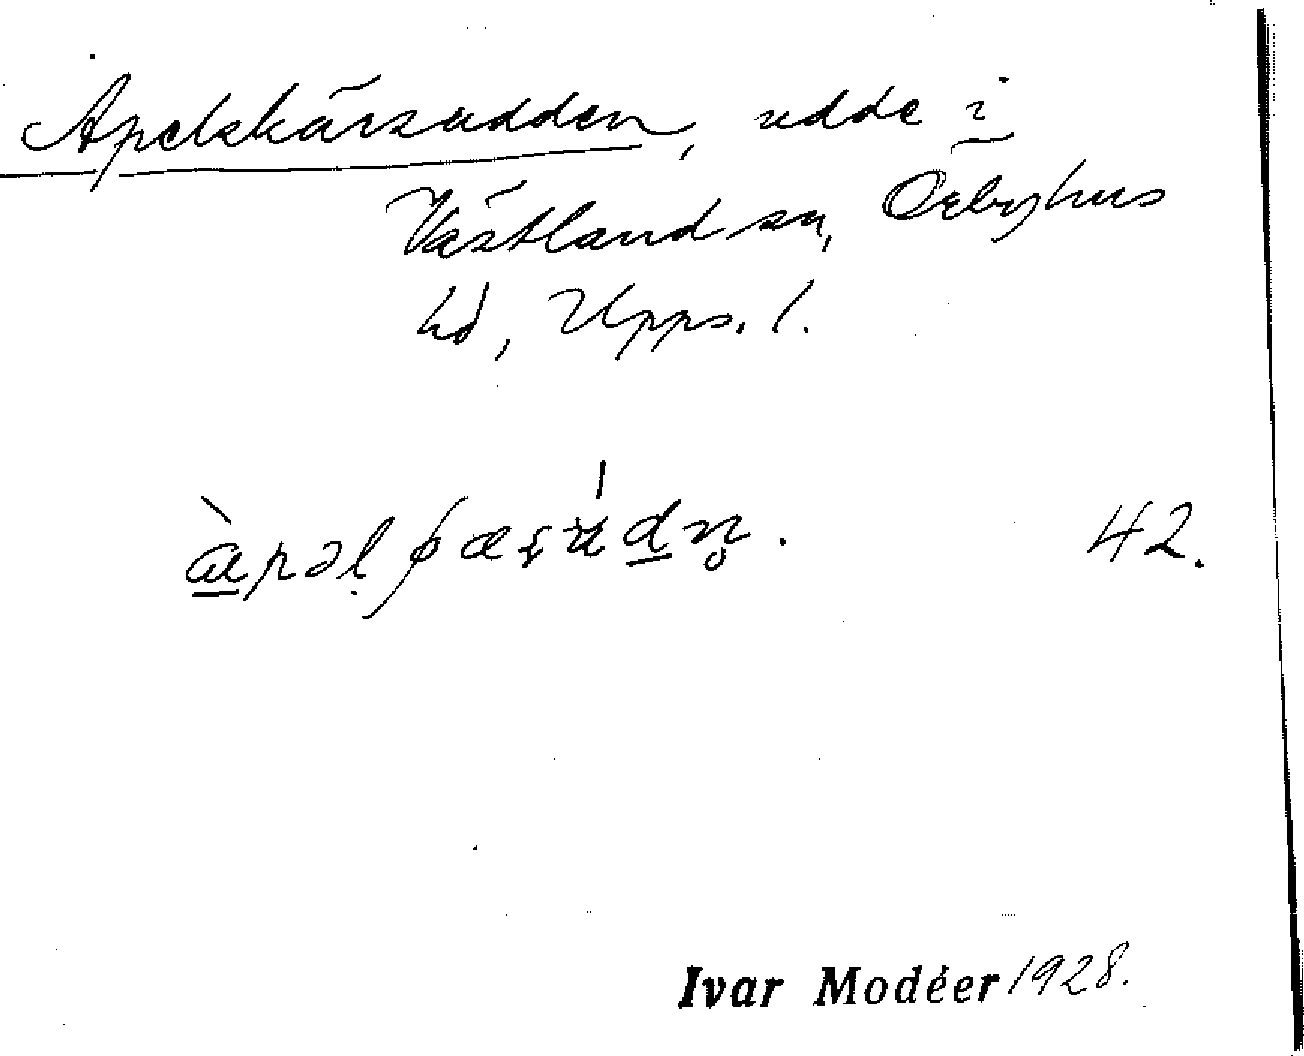 Apelskärsudden, udde i
Västland sn, Örbyhus
hd, Upps. l.
42.
Ivar Modéer 1928.